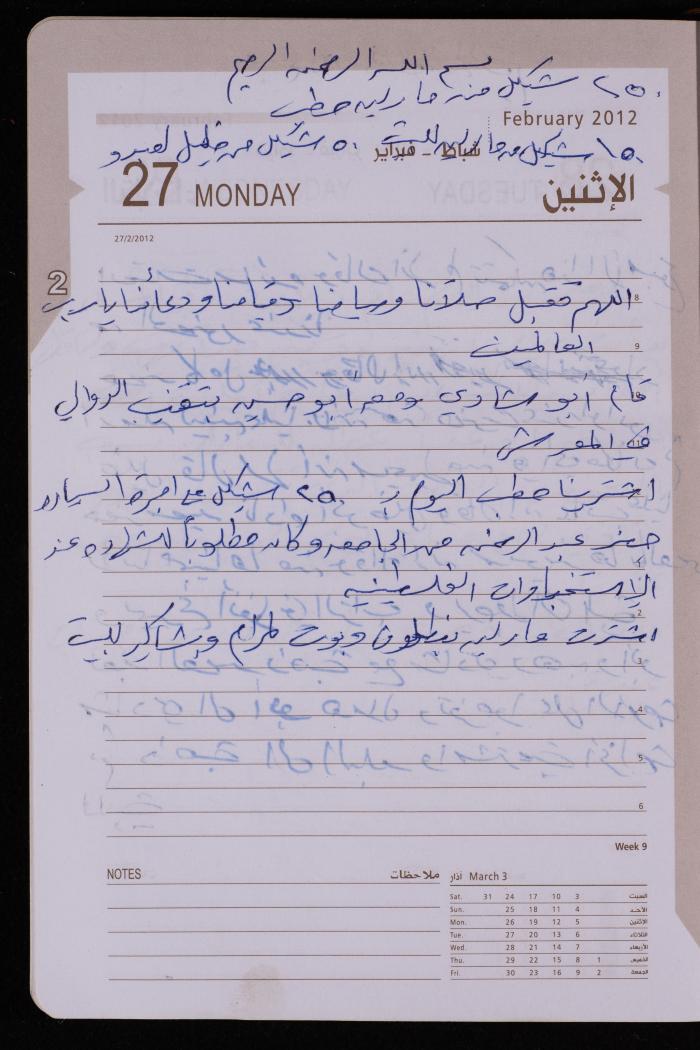 بسم الله الرحمن الرحيم
٢٥٠ شيكل منه مارليه حطب
February 2012
شباط - فبراير
١٥٠ شيكل من مارليه للبيت ٥٠ شيكل من خليل لعبدو
27 MONDAY
الإثنين
27/2/2012
2
اللهم تقبل صلاتنا وصيامنا وقيامنا ودعائنا يا رب
8
العالمين
9
قام أبو شادي ومعه أبو حسين بتقنيب الدوالي
في المفرش
11
اشترينا حطب اليوم بـ ٢٥٠ شيكل مع اجرة السياره
حضر عبد الرحمن من الجامعه وكان مطلوباً للشهاده عند
1
الاستخبارات الفلسطينيه
2
اشترت مارليه بنطلون وبوت لمرام وبشاكير للبيت
3
4
5
6
Week 9
NOTES ملاحظات
March 3 اذار
Sat. 31 24 17 10 3 السبت
Sun. 25 18 11 4 الأحد
Mon. 26 19 12 5 الإثنين
Tue. 27 20 13 6 الثلاثاء
Wed. 28 21 14 7 الأربعاء
Thu. 29 22 15 8 1 الخميس
Fri. 30 23 16 9 2 الجمعة